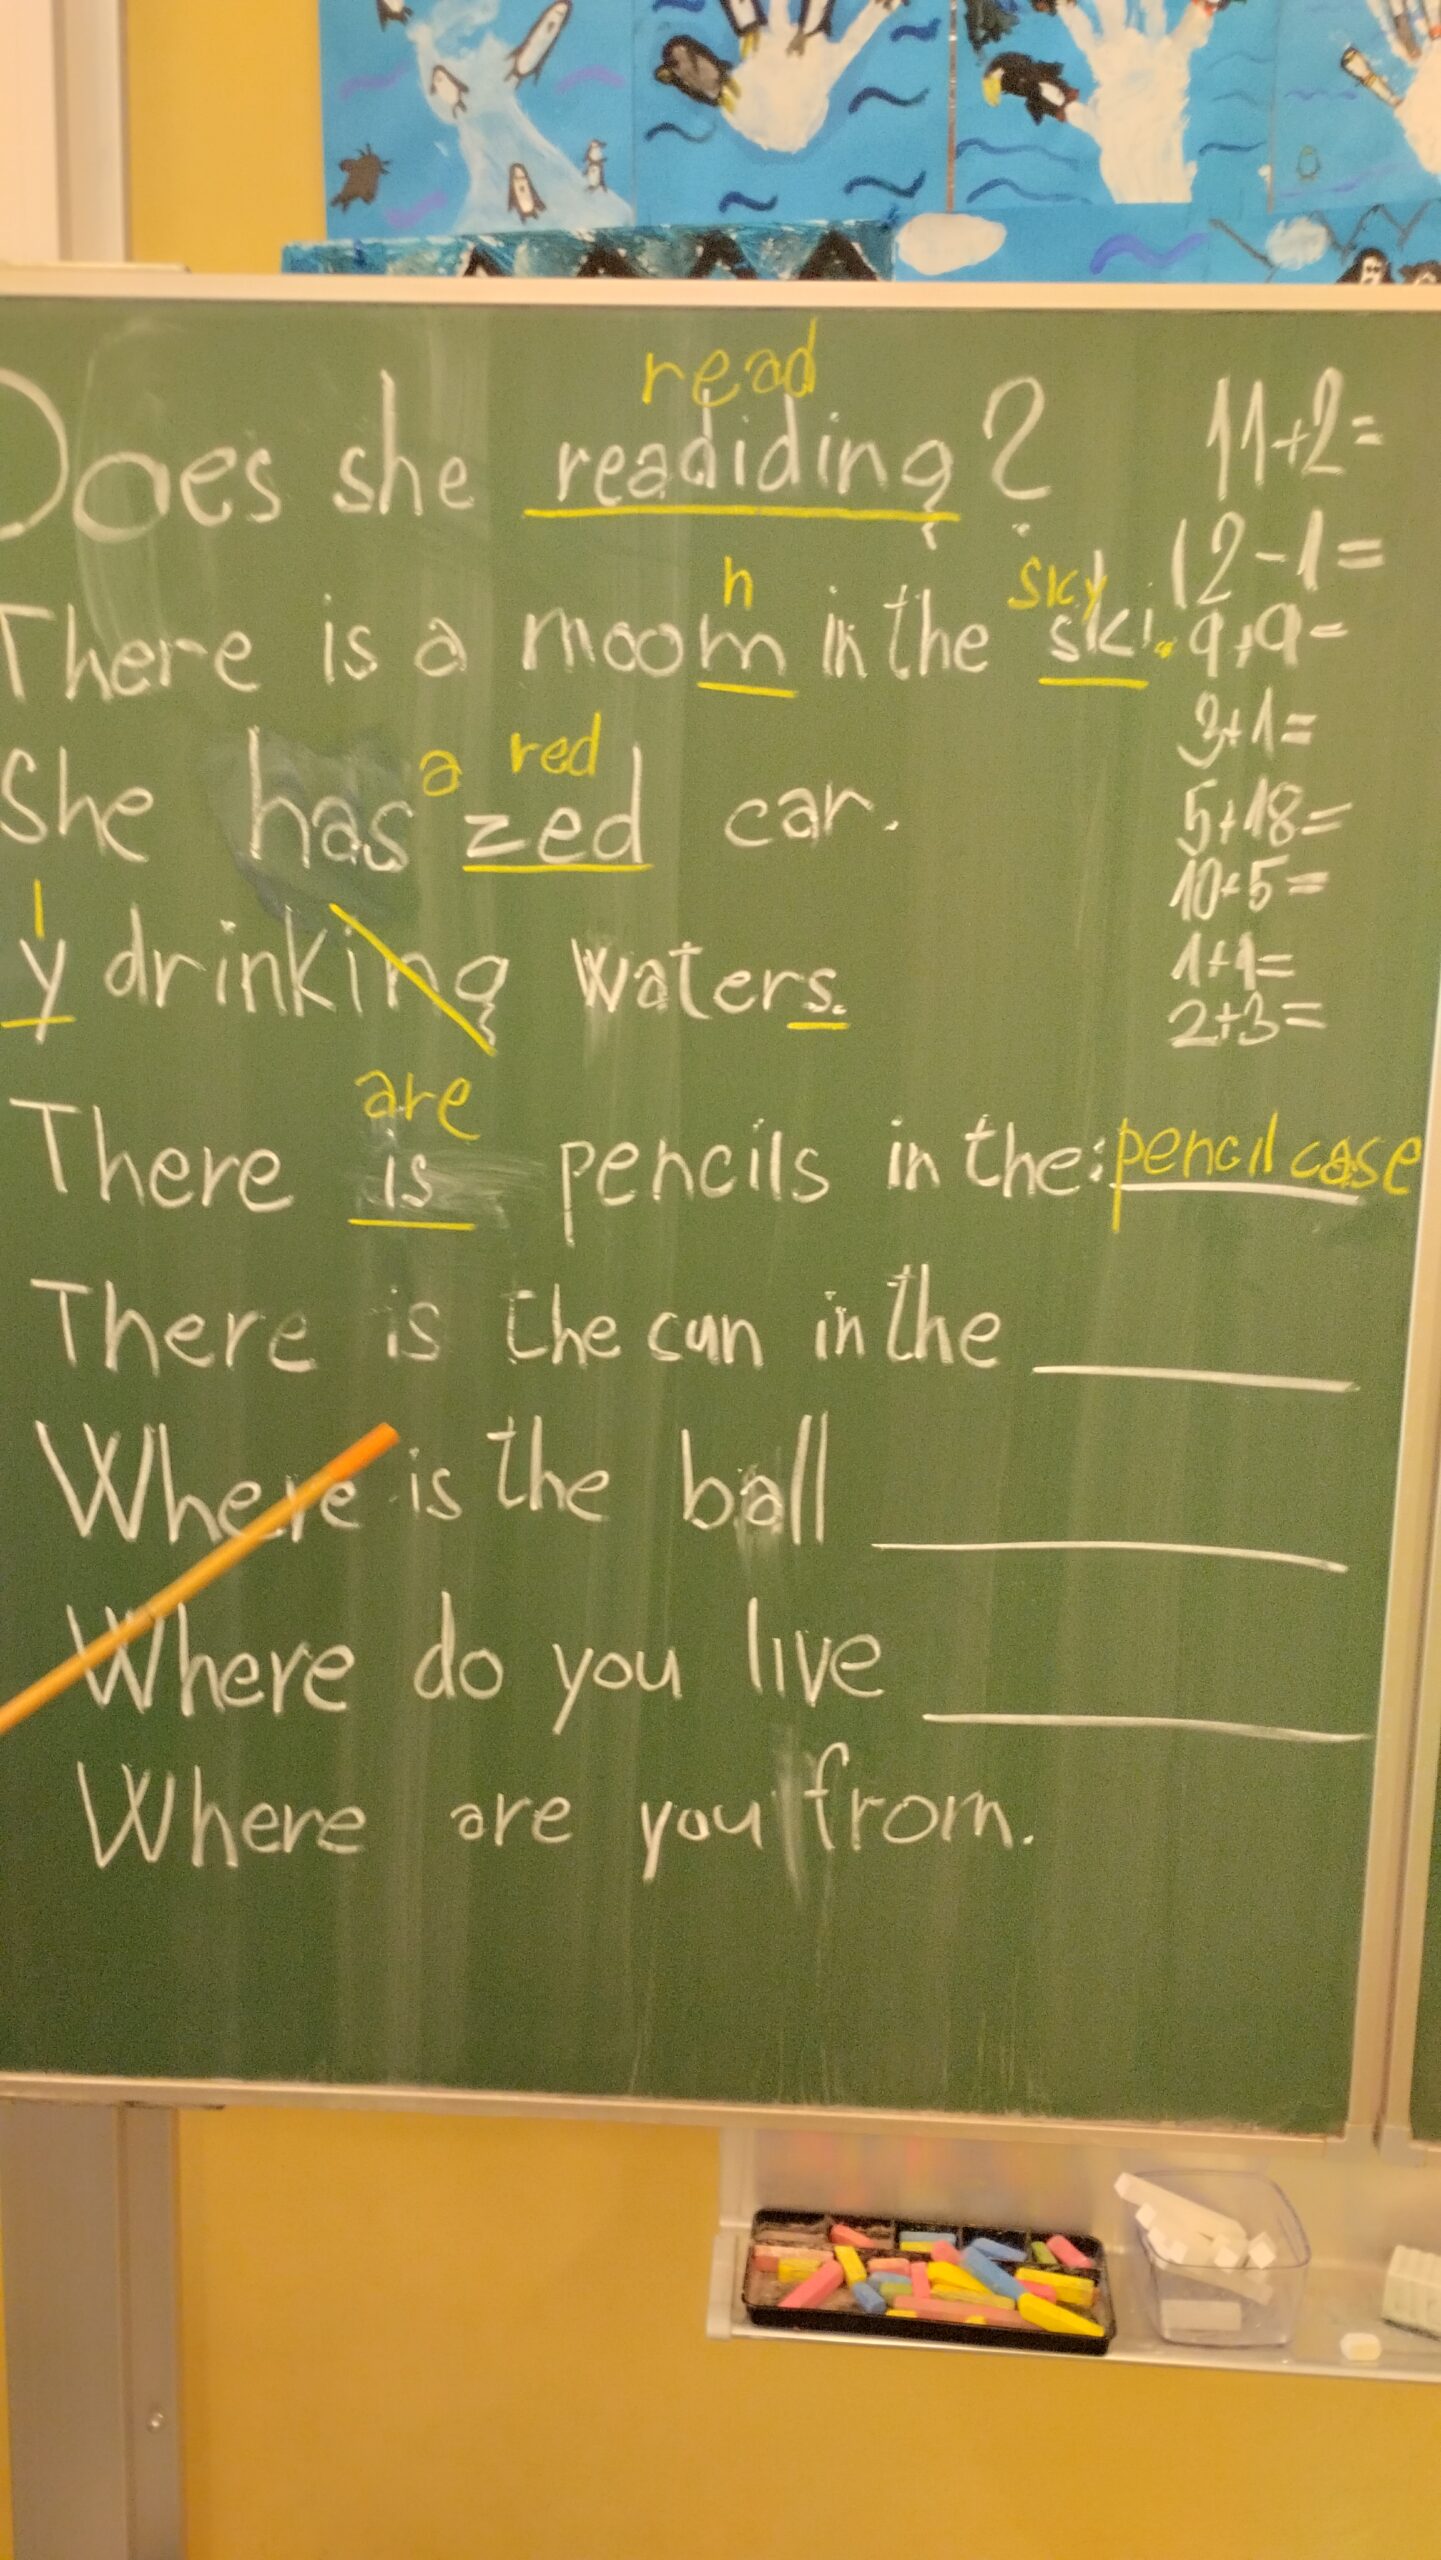 read
Does she readiding?
n sky
There is a moom in the ski.
a red
She has zed car.
I
y drinking waters.
are
There is pencils in the: pencil case
There is the cun in the
Where is the ball
Where do you live
Where are you from.
11+2=
12-1=
9+9=
3+1=
5+18=
10+5=
1+1=
2+3=